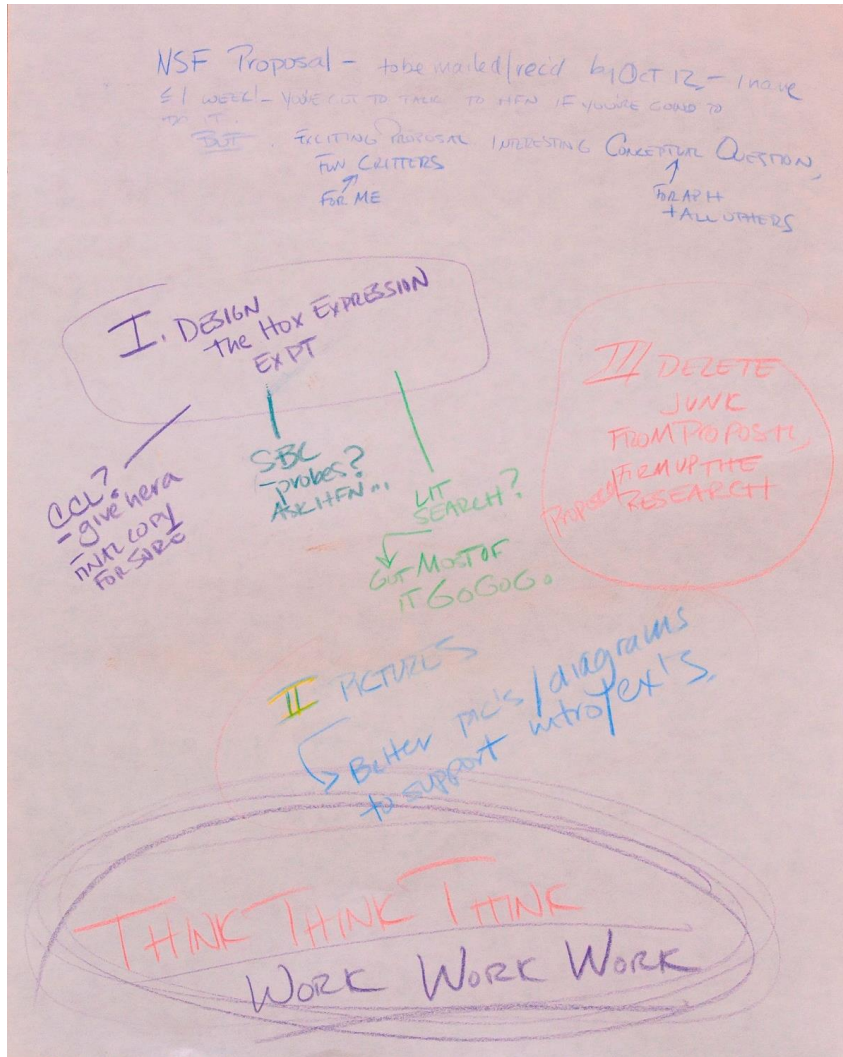 NSF Proposal - to be mailed/rec'd by Oct 12 - I have
≤ 1 WEEK! - YOU'VE GOT TO TALK TO HFN IF YOU'RE GOING TO
DO IT.
BUT EXCITING PROPOSAL INTERESTING CONCEPTUAL QUESTION,
FUN CRITTERS
FOR ME
FOR APH
+ ALL OTHERS
I. DESIGN
the HOX EXPRESSION
EXPT
CCL?
- give her a
FINAL COPY
FOR SURE
SBC
- probes?
ASK HFN...
LIT
SEARCH?
GOT MOST OF
IT GO GO GO.
III DELETE
JUNK
FROM PROPOSAL,
FIRM UP THE
PROPOSED RESEARCH
II PICTURES
Better pic's/diagrams
to support intro/ex's.
THINK THINK THINK
WORK WORK WORK